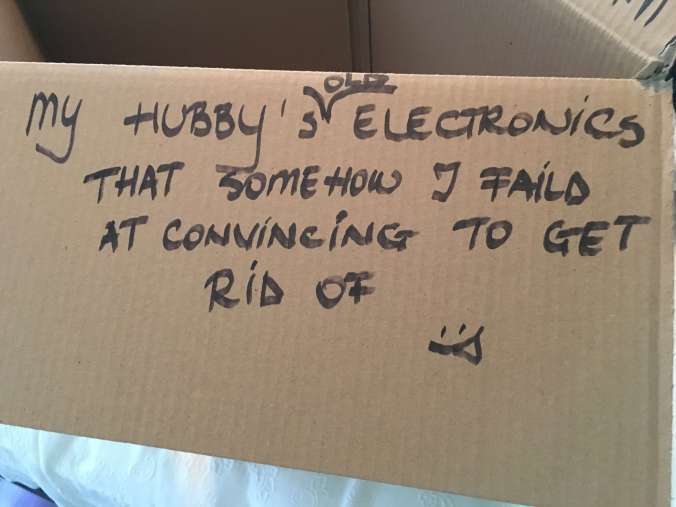 MY HUBBY'S OLD ELECTRONICS
THAT SOMEHOW I FAILD
AT CONVINCING TO GET
RID OF